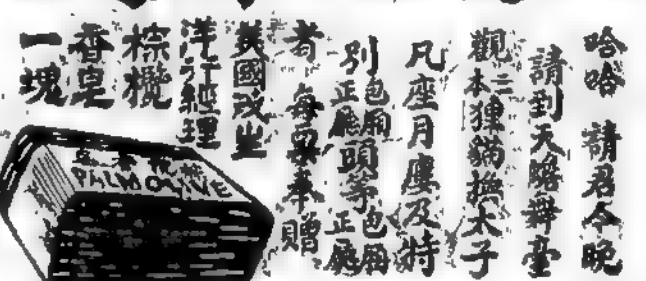 哈哈 請君今晚
請到天蟾舞臺
觀二本狸貓換太子
凡座月樓及特
別包廂正廳頭等包廂正廳
者 每票奉贈
美國茂生
洋行經理
棕欖
香皂
一塊
PALMOLIVE